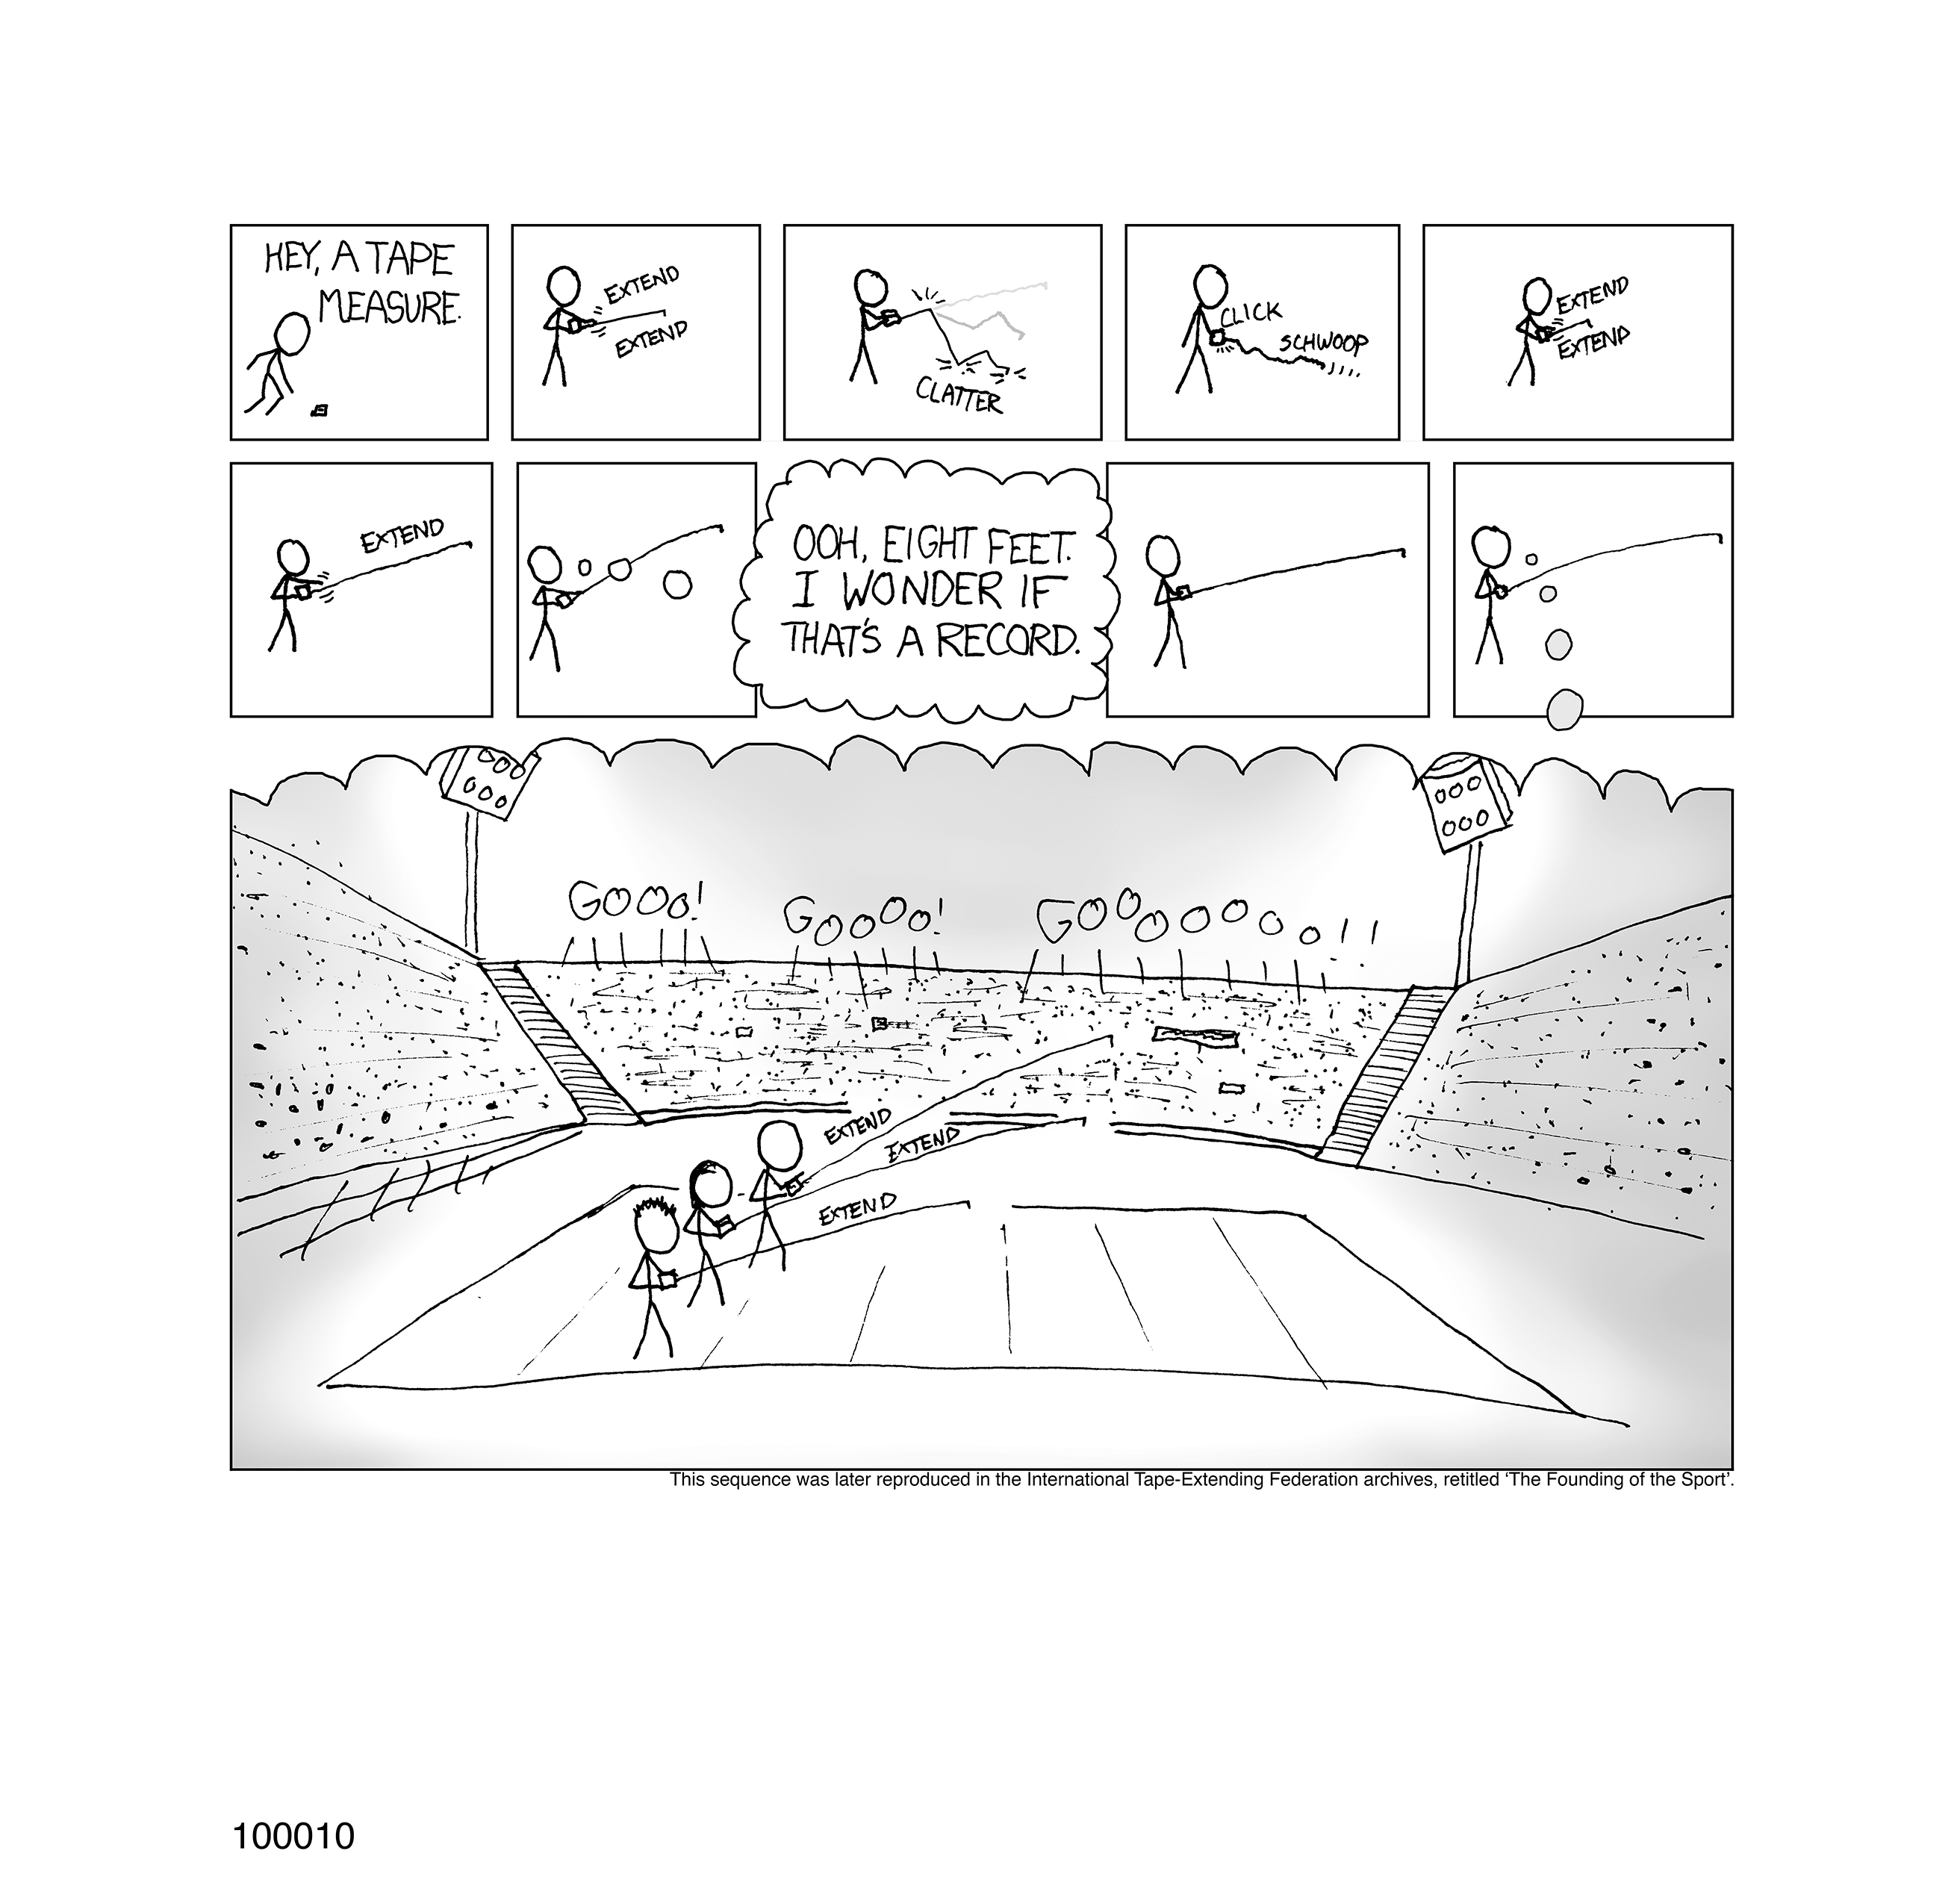 HEY, A TAPE
MEASURE.
EXTEND
EXTEND
CLATTER
CLICK
SCHWOOP
EXTEND
EXTEND
EXTEND
OOH, EIGHT FEET.
I WONDER IF
THAT'S A RECORD.
GOOOO!
GOOOOO!
GOOOOOOOO!!
EXTEND
EXTEND
EXTEND
This sequence was later reproduced in the International Tape-Extending Federation archives, retitled ‘The Founding of the Sport’.
100010